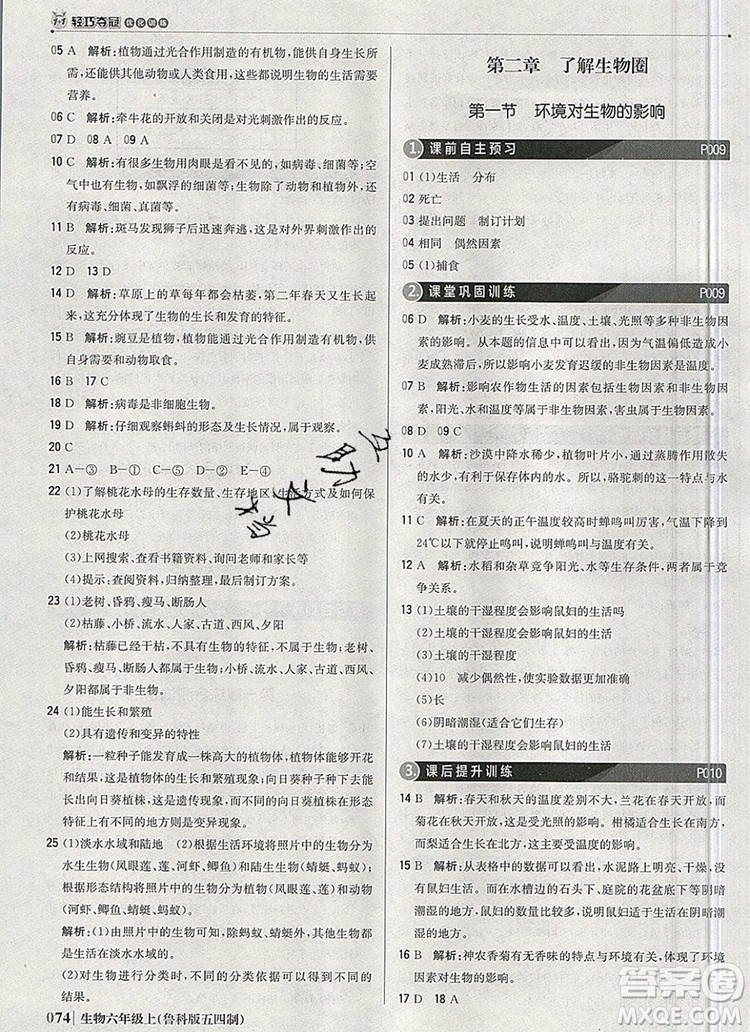 1+1 轻巧夺冠 优化训练
05 A 解析:植物通过光合作用制造的有机物,供给自身,并被其他动物或人类食用,这都说明生物的生活需要营养。
06 C 解析:牵牛花的开放和关闭是对光刺激作出的反应。
07 D 08 A 09 A
10 C 解析:有很多生物用肉眼是看不见的,如病毒、细菌等;空气中也有生物,如飘浮的细菌等;生物体内也有生物,如人体内有病毒、细菌、真菌等。
11 B 解析:斑马发现狮子后迅速奔逃,这是对外界刺激作出的反应。
12 D 13 D
14 D 解析:草原上的草每年都会枯萎,第二年春天又生长起来,这充分体现了生物的生长和发育的特征。
15 B 解析:豌豆是植物,植物能通过光合作用制造有机物,不需要与动物取食。
16 B 17 C
18 D 解析:病毒是非细胞生物。
19 D 解析:仔细观察蝌蚪的形态及生长情况,属于观察。
20 C
21 A—③ B—① C—② D—⑤ E—④
22 (1)了解桃花水母的生存数量、生存地区、生活方式及如何保护桃花水母
(2)桃花水母
(3)上网搜索、查看书籍资料、询问老师和家长等
(4)提示:分析资料,归纳整理,最后制订方案。
23 (1)老树、昏鸦、瘦马、断肠人
(2)枯藤、小桥、流水、人家、古道、西风、夕阳
解析:枯藤已经干枯,不具有生物的特征,不属于生物;老树、昏鸦、瘦马、断肠人都具有生物的特征,属于生物;小桥、流水、人家、古道、西风、夕阳都属于非生物。
24 (1)能生长和繁殖
(2)具有遗传和变异的特性
解析:一粒种子能发育成一株高大的植物体,植物体能够开花和结果,这是生物的生长和繁殖现象;由向日葵种子发育成的植株叫向日葵植株,这是遗传现象;而不同的向日葵植株在形态特征上有不同的地方则是变异现象。
25 (1)淡水水域和陆地 (2)根据生活环境将照片中的生物分为水生生物(凤眼莲、莲、河虾、鲫鱼)和陆生生物(蜻蜓、蚂蚁);根据形态结构将照片中的生物分为植物(凤眼莲、莲)和动物(河虾、鲫鱼、蜻蜓、蚂蚁)
解析:(1)由照片中的生物可知,除蚂蚁、蜻蜓外,其他生物都生活在淡水水域。
(2)分类依据不同,可将照片中的生物分为不同的类别。
074 生物六年级上(鲁科版五四制)
第二章 了解生物圈
第一节 环境对生物的影响
1. 课前自主预习 P009
01 (1)生活 分布
02 死亡
03 提出问题 制订计划
04 相同 偶然因素
05 (1)捕食
2. 课堂巩固训练 P009
06 D 解析:小麦的生长受水、温度、土壤、光照等多种非生物因素的影响。从本题的分析可以看出,因为气温偏低导致小麦成熟滞后,所以影响小麦发育迟缓的非生物因素是温度。
07 B 解析:影响农作物生活的因素包括生物因素和非生物因素,阳光、水和土壤等属于非生物因素,害虫属于生物因素。
08 D 09 C
10 A 解析:沙漠中降水稀少,植物叶片小,通过蒸腾作用散失的水少,有利于保存体内的水。所以,骆驼刺的这一特点与水有关。
11 C 解析:在夏天的正午温度较高时蝉鸣叫,气温下降到24℃以下后停止鸣叫,说明影响蝉鸣叫的因素是温度。
12 A 解析:水稻和杂草争夺阳光、水分等,两者之间属于竞争关系。
13 (1)土壤的干湿程度会影响鼠妇的生活吗
(2)土壤的干湿程度会影响鼠妇的生活
(3)土壤的干湿程度
(4)10 避免偶然因素的影响
(5)长
(6)阴暗潮湿(适合它们生存)
(7)土壤的干湿程度会影响鼠妇的生活
3. 课后提升训练 P010
14 B 解析:春天和秋天的温度差别不大,兰花在春天开放,而菊花在秋天开放,这是受光照的影响。柑橘适合生长在南方,而梨适合生长在北方,这主要受温度的影响。
15 B 解析:从表格中的数据可以看出,水泥路上明亮、干燥,没有鼠妇生活,而水边的石头下、庭院的花盆底下等阴暗潮湿的地方,鼠妇的数量较多,这说明鼠妇喜欢阴暗潮湿的地方。
16 B 解析:神农香菊有无香味的特点与环境有关,体现了环境影响生物。
17 D 18 A
答案圈